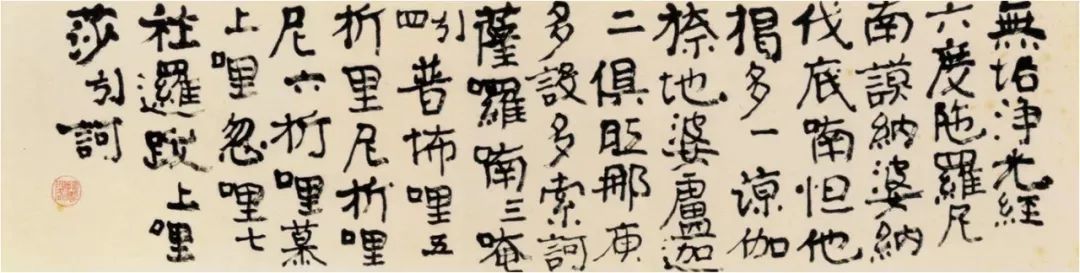 無垢淨光經
六度陁羅尼
南謨納婆納
伐底喃怛他
揭多一諒伽
捺地婆盧迦
二俱胝那庾
多設多索訶
薩羅喃三唵
引四普怖哩五
折里尼折哩
尼六折哩慕
上哩忽哩七
社邏跋上哩
莎引訶